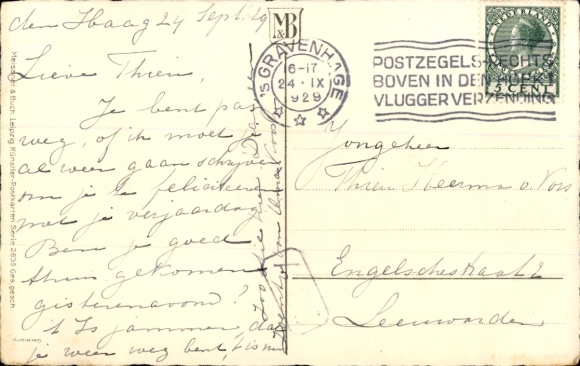 den Haag 24 Sept. 29
Lieve Thien,
Je bent pas
weg, of ik moet je
al weer gaan schrijven
om je te feliciteren
met je verjaardag
Ben je goed
thuis gekomen
gisterenavond?
't Is jammer dat
je weer weg bent, 't is nu
M&B
'S GRAVENHAGE
16-17
24 · IX
1929
POSTZEGELS RECHTS
BOVEN IN DEN HOEK
VLUGGER VERZENDING
NEDERLAND
5 CENT
Jongeheer
Thien Heerma v. Voss
Engelschestraat 2
Leeuwarden
Meissner & Buch, Leipzig Künstler-Postkarten Serie 2835 Ges. gesch.
Germany